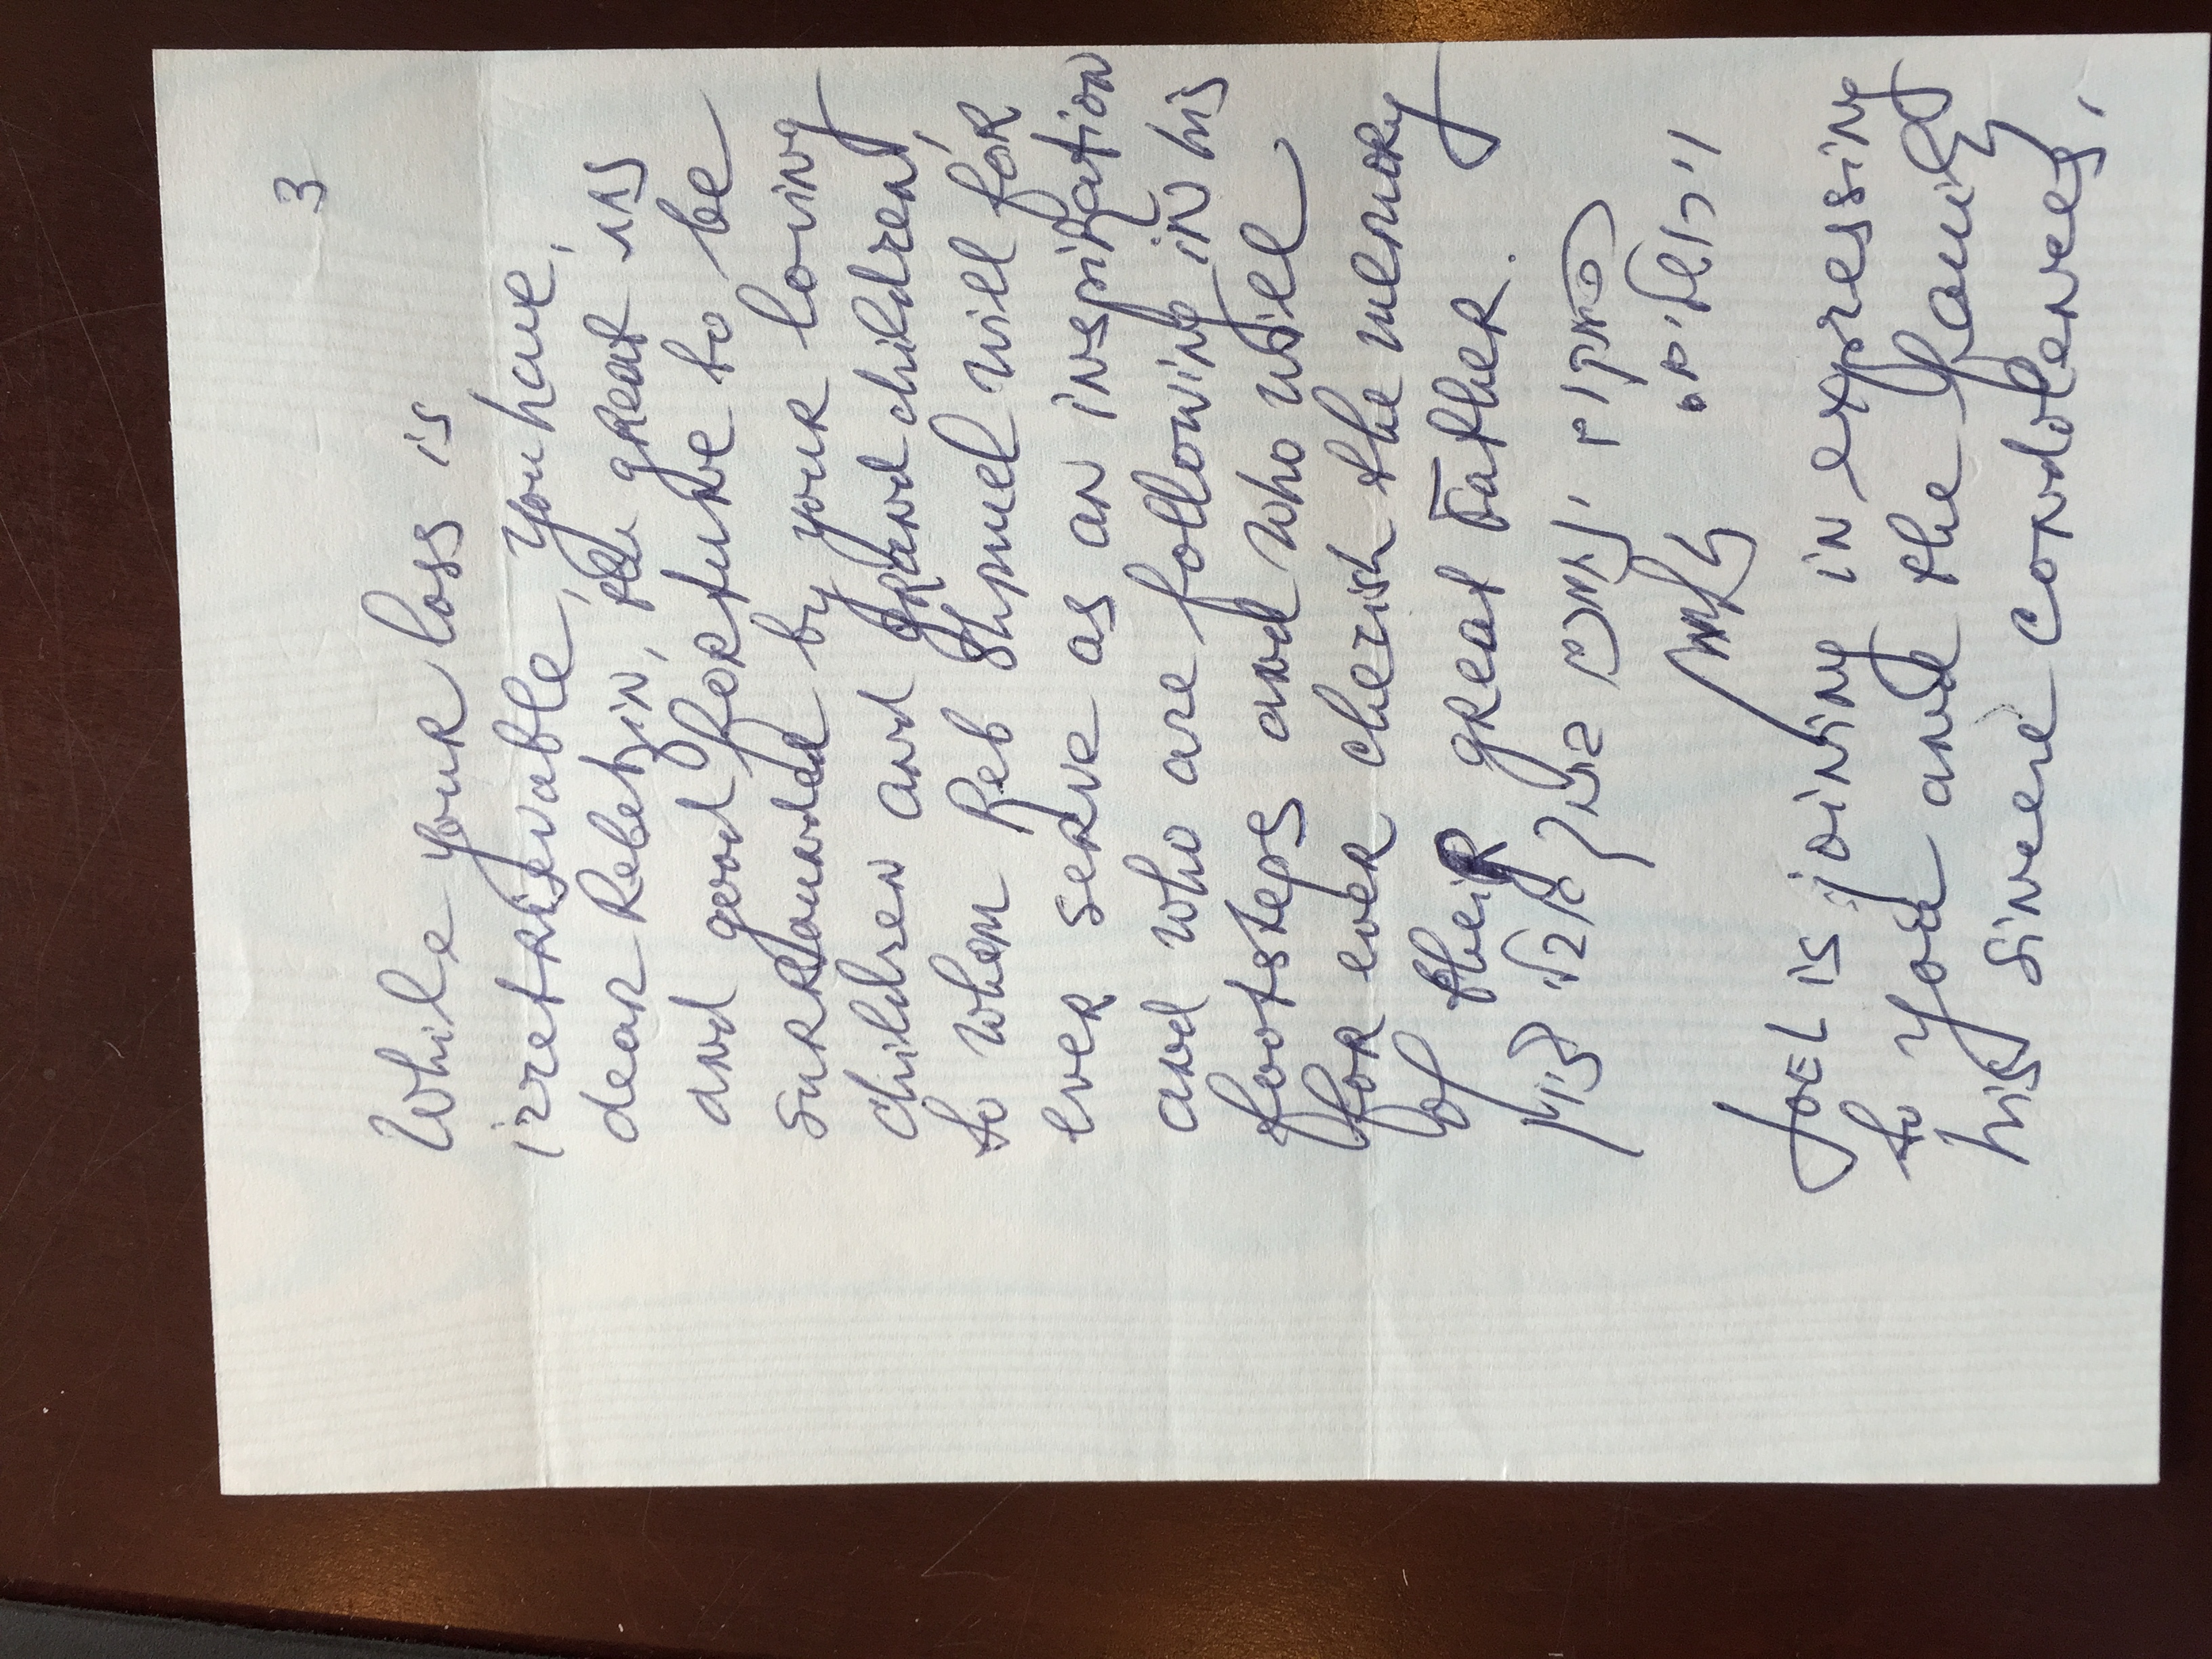 3
While your loss is
irretrievable, you have,
dear Rebetzin, the great zus
and good fortune to be
surrounded by your loving
children and grandchildren,
to whom Reb Shmuel will for
ever serve as an inspiration
and who are following in his
footsteps and who will
for ever cherish the memory
of their great Father.
המקום ינחם אתכם בתוך אבלי ציון
וירושלים.
JOEL is joining in expressing
to you and the family
his sincere condolences,